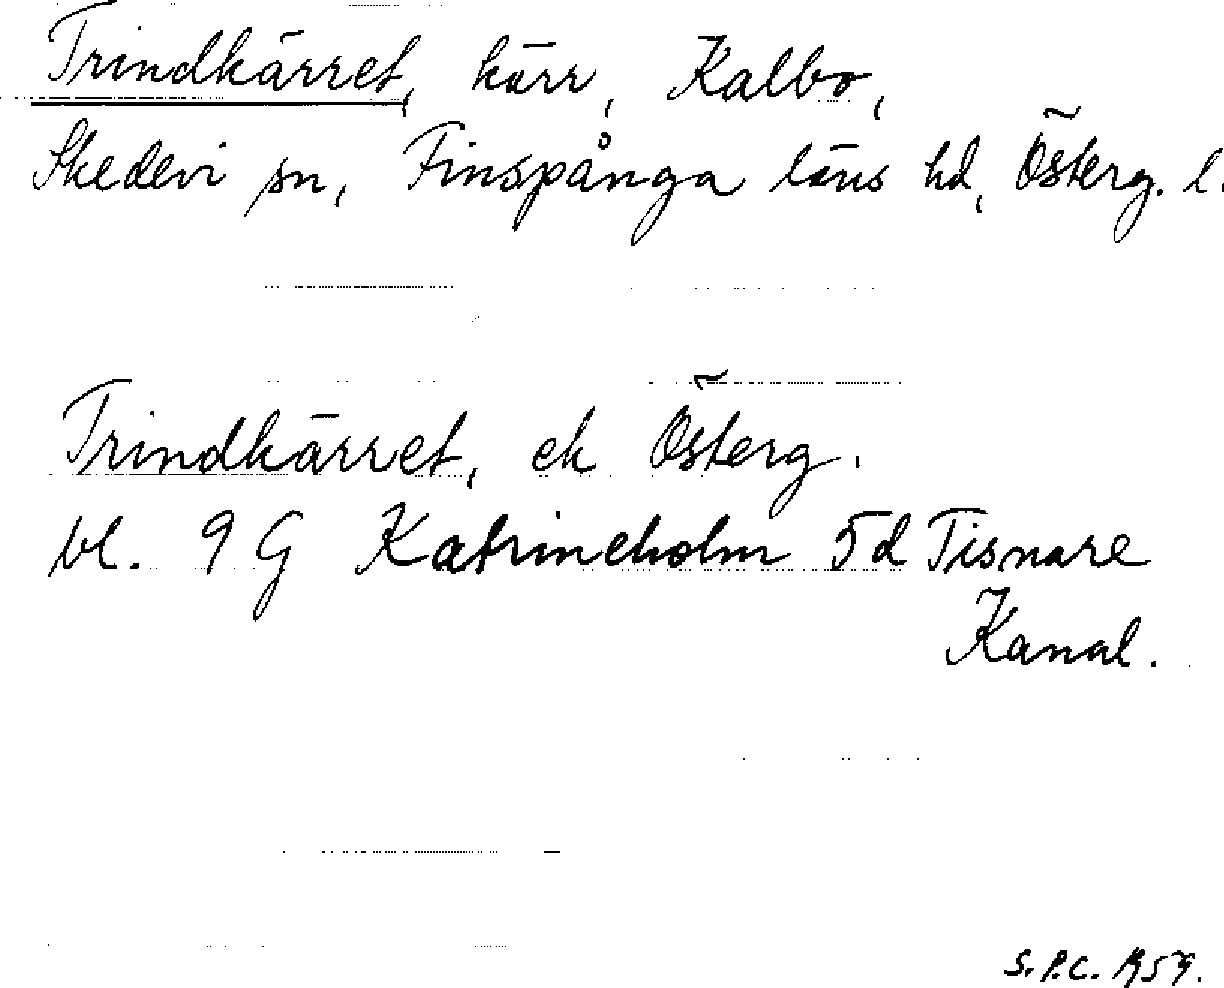 Trindkärret, kärr, Kalbo,
Skedevi sn, Finspånga läns hd, Österg. l.
Trindkärret, ek Österg.
bl. 9 G Katrineholm 5d Tisnare
Kanal.
S.P.C. 1959.